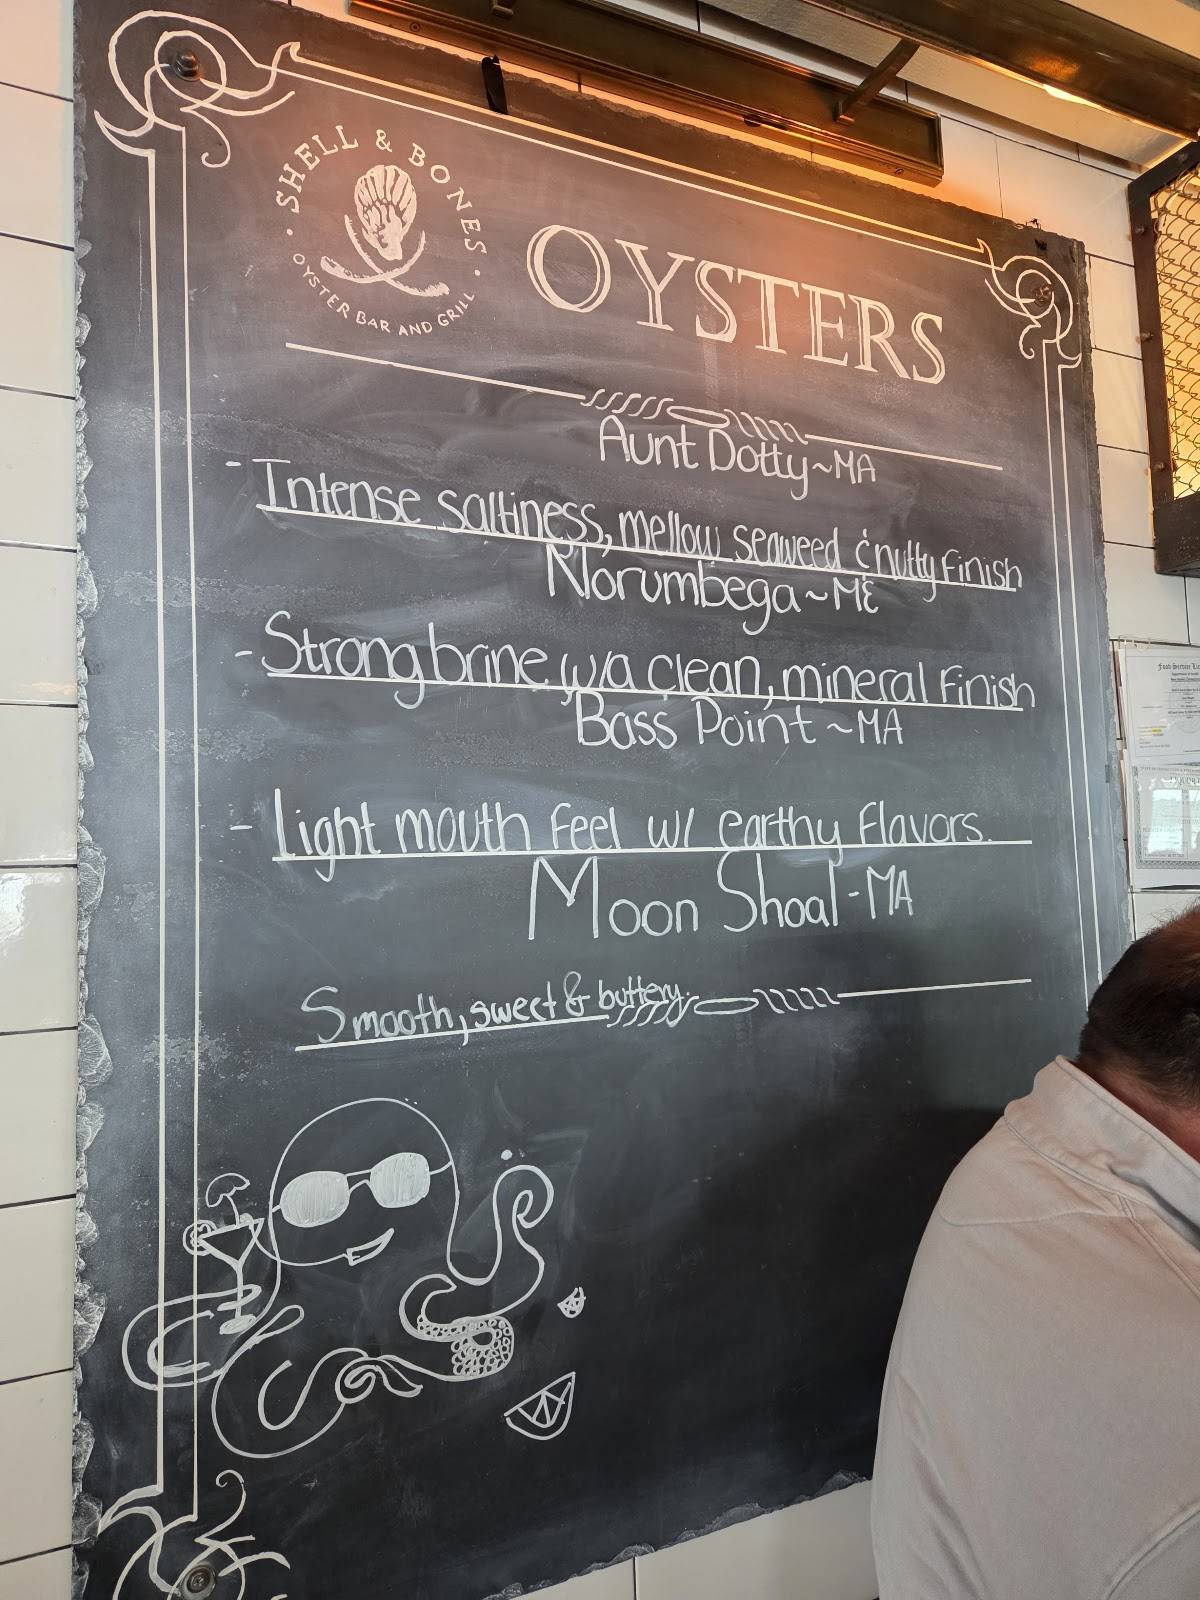 SHELL & BONES
OYSTER BAR AND GRILL
OYSTERS
Aunt Dotty~MA
- Intense saltiness, mellow seaweed & nutty finish
Norumbega~ME
- Strong brine w/a clean, mineral finish
Bass Point ~MA
- Light mouth feel w/ earthy flavors.
Moon Shoal-MA
Smooth, sweet & buttery.